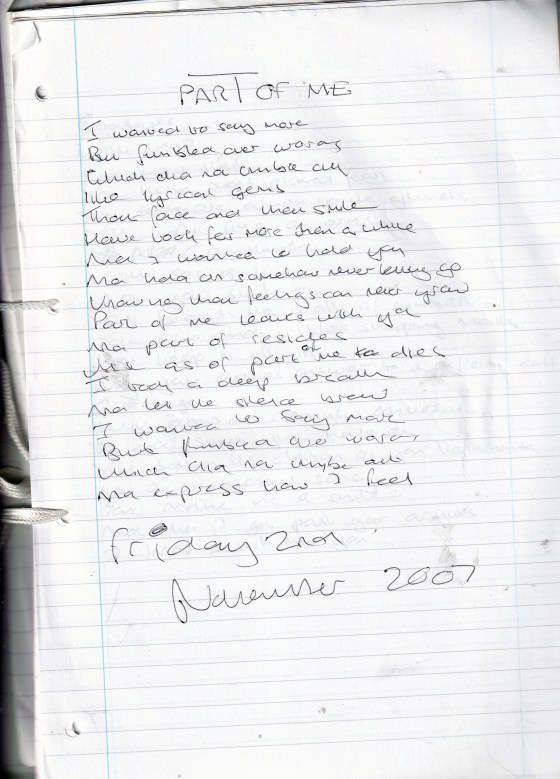 PART OF ME
I wanted to say more
But fumbled over words
Which did not umble out
like lyrical gems
That face and that smile
Have took far more than a while
And I wanted to hold you
And hold on somehow never letting go
Knowing that feelings can never grow
Part of me leaves with you
And part of resides
as of part of me dies
I took a deep breath
And let the silence brew
I wanted to say more
But fumbled over words
Which did not umble out
And express how I feel
Friday 2nd
November 2007